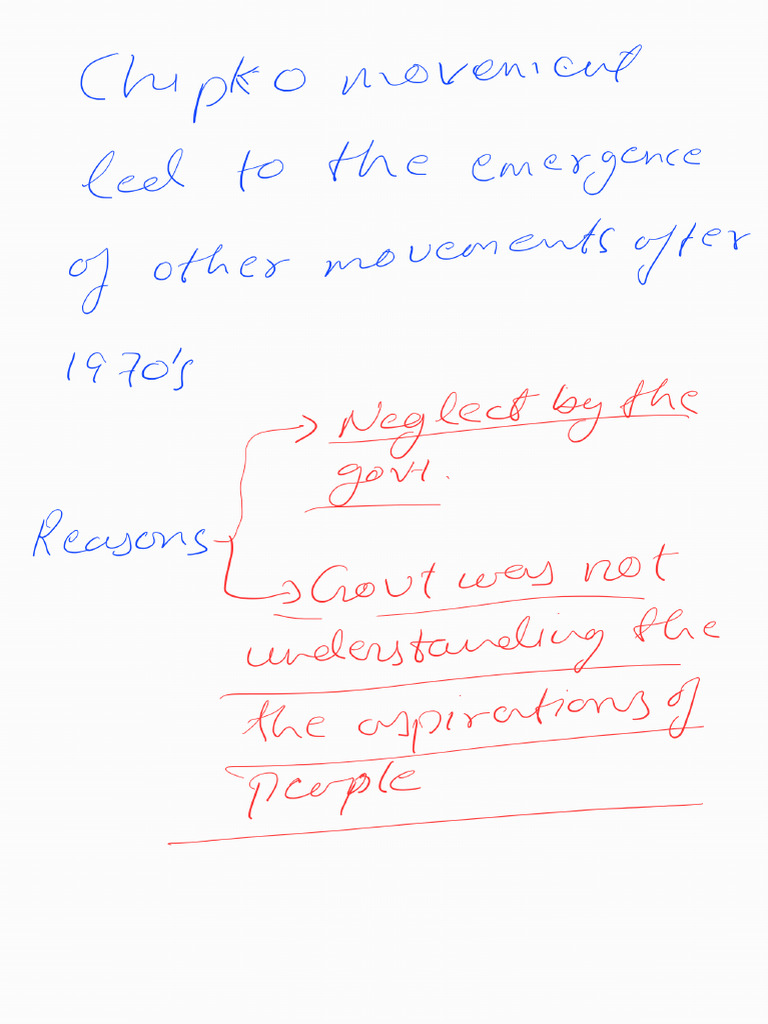 Chipko movement
led to the emergence
of other movements after
1970's
Neglect by the
govt.
Reasons
Govt was not
understanding the
the aspirations of
people